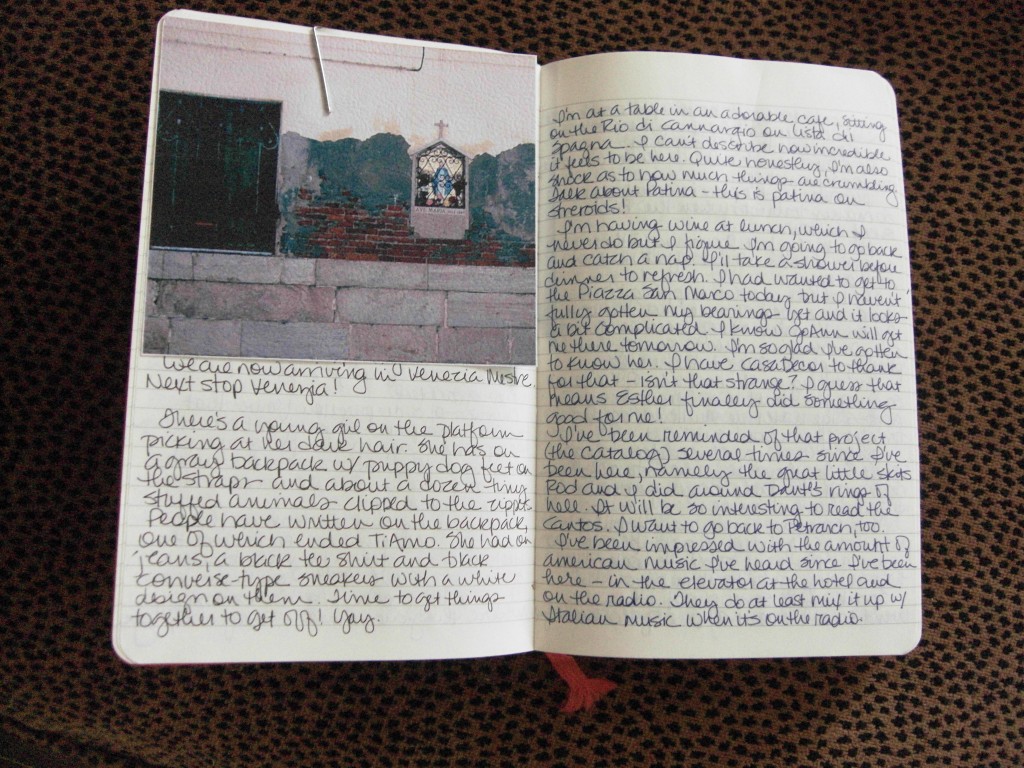 AVE MARIA
We are now arriving in Venezia Mestre.
Next stop Venezia!
There's a young girl on the platform
picking at her dark hair. She has on
a gray backpack w/ puppy dog feet on
the straps and about a dozen tiny
stuffed animals clipped to the zippers.
People have written on the backpack,
one of which ended Ti Amo. She had on
jeans, a black tee shirt and black
converse-type sneakers with a white
design on them. Time to get things
together to get off! Yay.
I'm at a table in an adorable cafe, sitting
on the Rio di Cannargio on Lista di
Spagna. I can't describe how incredible
it feels to be here. Quite honestly, I'm also
shock as to how much things are crumbling.
Talk about patina - this is patina on
steroids!
I'm having wine at lunch, which I
never do but I figure I'm going to go back
and catch a nap. I'll take a shower before
dinner to refresh. I had wanted to get to
the Piazza San Marco today but I haven't
fully gotten my bearings yet and it looks
a bit complicated. I know OpAnn will get
me there tomorrow. I'm so glad I've gotten
to know her. I have CasaDecor to thank
for that - isn't that strange? I guess that
means Esther finally did something
good for me!
I've been reminded of that project
(the catalog) several times since I've
been here, namely the great little skits
Rod and I did around Dante's rings of
hell. It will be so interesting to read the
Cantos. I want to go back to Petrarch, too.
I've been impressed with the amount of
american music I've heard since I've been
here - in the elevator at the hotel and
on the radio. They do at least mix it up w/
Italian music when it's on the radio.